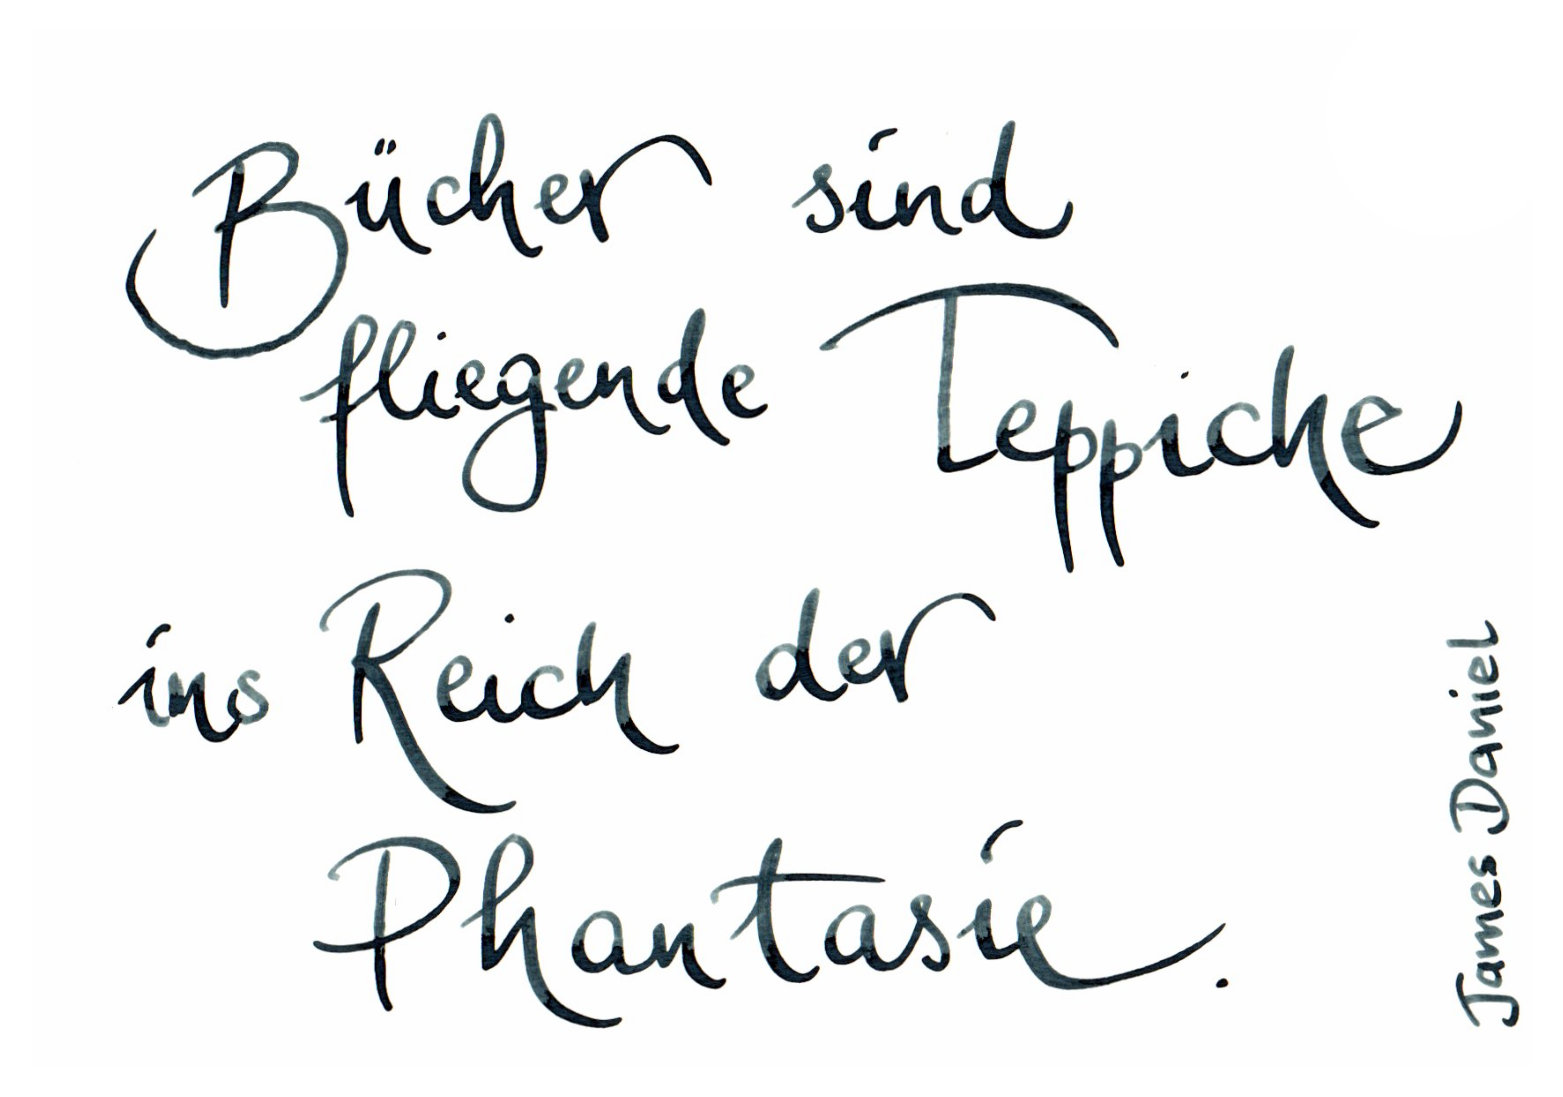 Bücher sind
fliegende Teppiche
ins Reich der
Phantasie.
James Daniel